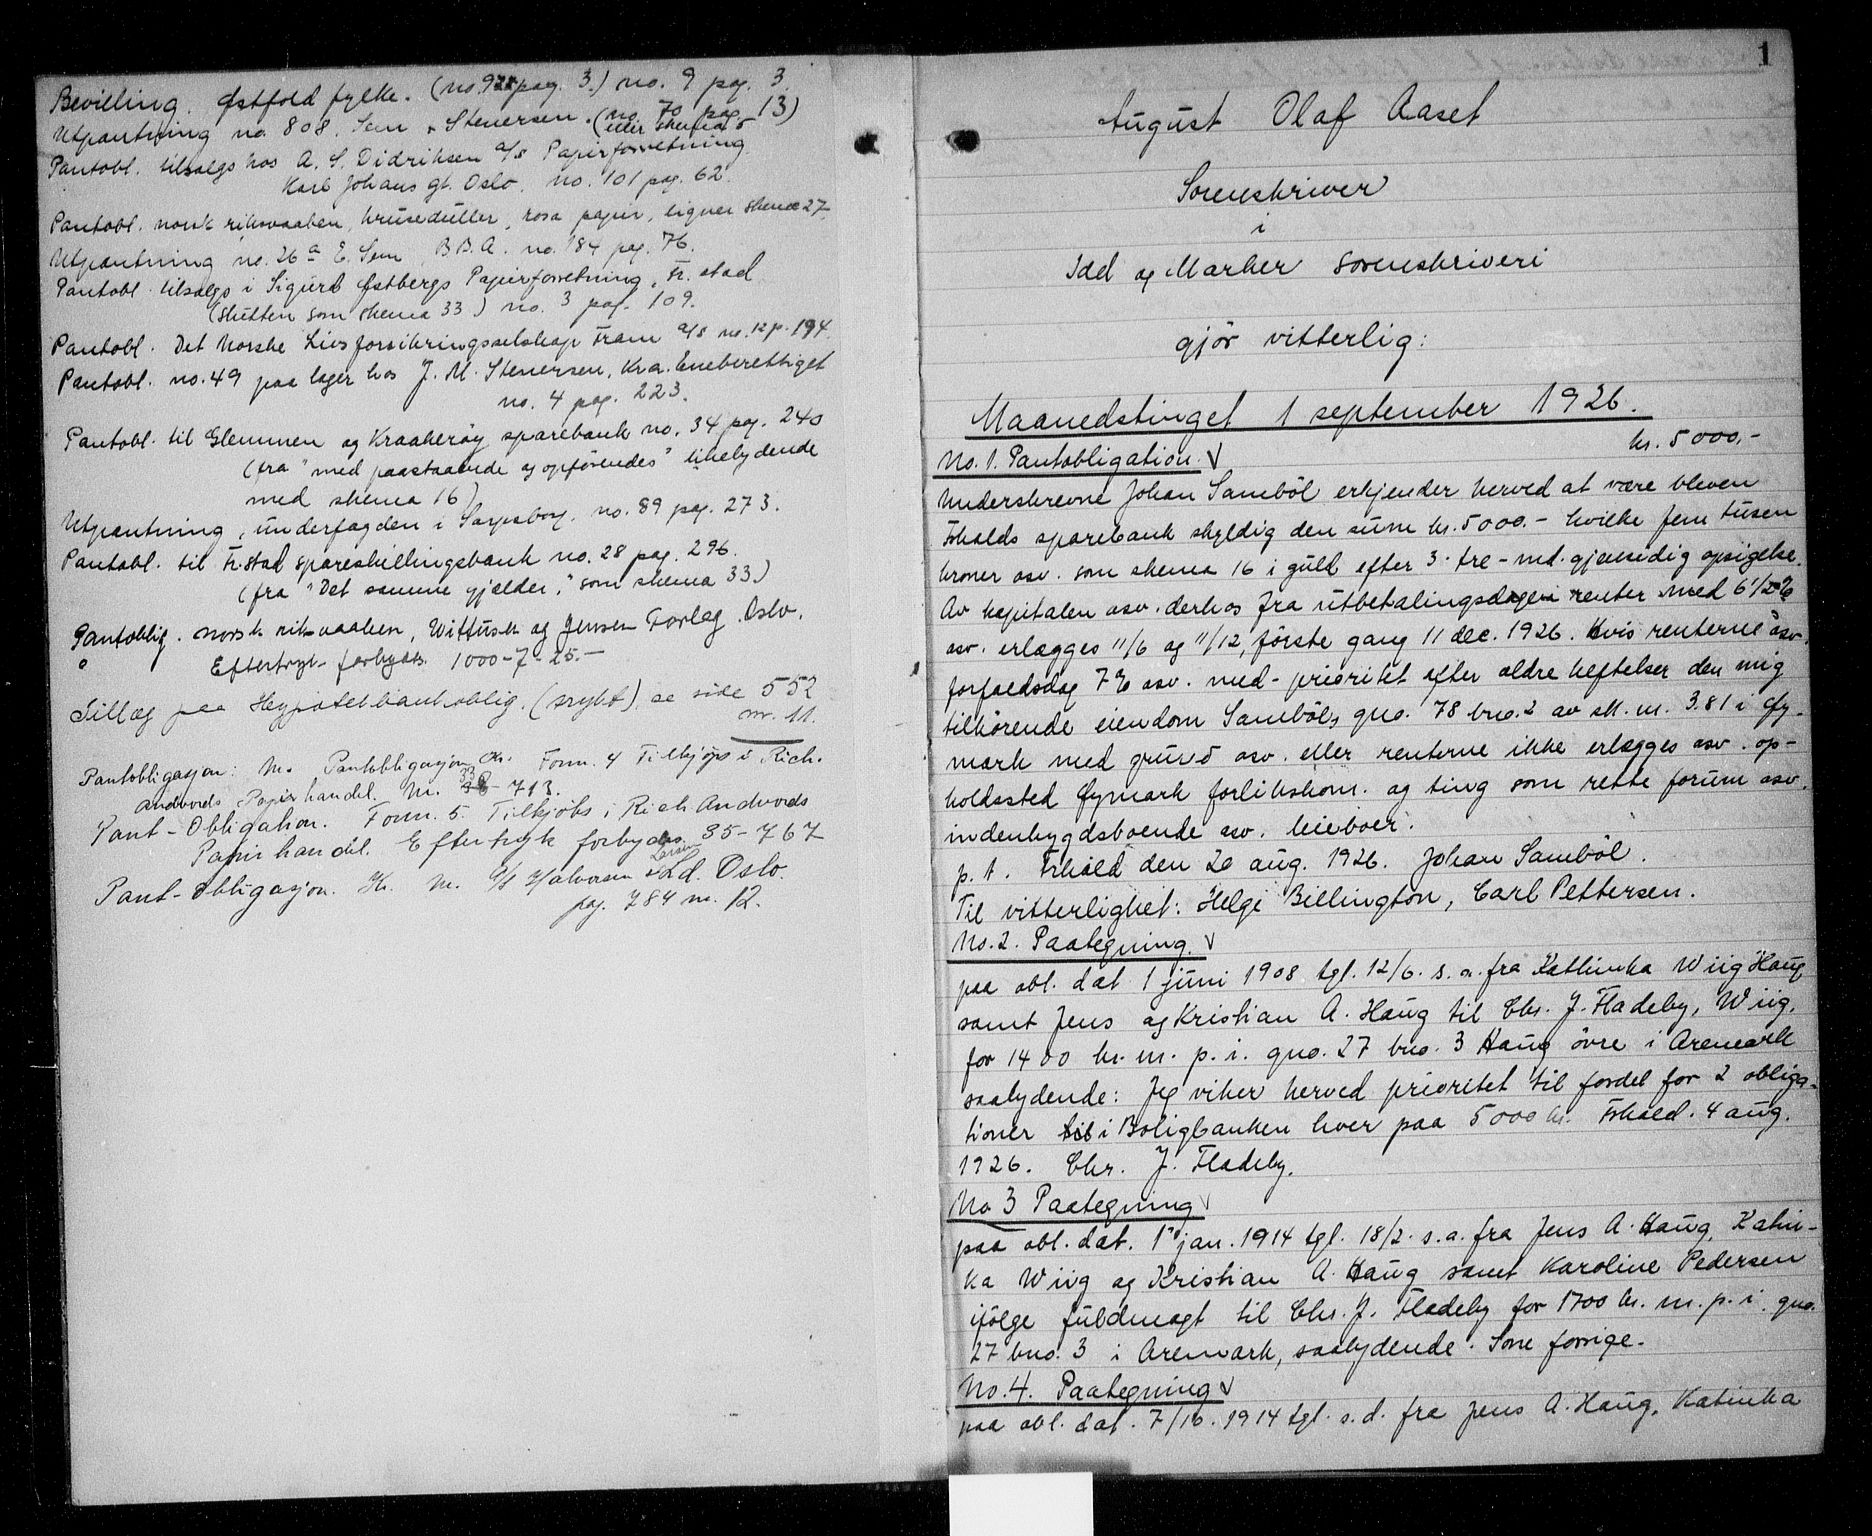 Bevilling. Østfold fylke. (no. 9 pag. 3.) no. 9 pag. 3.
Utpantning no. 808. Sem & Stenersen. (no. 70 pag. 13)
eller skema 5
Pantobl. tilsalgs hos A. S. Didriksen a/s Papirforretning
Karl Johans gt. Oslo. no. 101 pag. 62.
Pantobl. norsk riksvaaben, kruseduller, rosa papir, ligner skema 27
Utpantning no. 26a E. Sem B.B.A. no. 184 pag. 76.
Pantobl. tilsalgs i Sigurd Østbergs Papirforretning, Fr.stad
(slutten som skema 33) no. 3 pag. 109.
Pantobl. Det norske Livsforsikringsselskap Fram a/s no. 12 p. 194.
Pantobl. no. 49 paa lager hos J. M. Stenersen, Kra. Eneberettiget
no. 4 pag. 223.
Pantobl. til Glemmen og Kraakerøy sparebank no. 34 pag. 240
(fra "med paastaaende og opførendes" likelydende
med skema 16)
Utpantning, underfogden i Sarpsborg. no. 89 pag. 273.
Pantobl. til Fr.stad spareskillingsbank no. 28 pag. 296.
(fra "Det samme gjelder," som skema 33.)
Pantoblig. norsk riksvaaben, Wittusen og Jensen Forlag. Oslo.
" Eftertryk forbydes. 1000-7-25.-
Tillæg paa Hypotekbankoblig. (nybr), se side 552
nr. 11.
Pantobligasjon: M. Pantobligasjon Kr. Form. 4 Tilkjøps i Rich.
Andvords Papirhandel. Nr. 33 - 713.
Pant-Obligation. Form. 5. Tilkjøbs i Rich Andvords
Papirhandel. Eftertryk forbydes. 35-767
Pant-obligasjon. Kr. M. A/S Halvorsen & Larsen Ld. Oslo.
pag. 784 nr. 12.
1
August Olaf Aaset
Sorenskriver
i
Idd og Marker sorenskriveri
gjör vitterlig:
Maanedstinget 1 september 1926.
No. 1. Pantobligation. √ kr. 5000,-
Underskrevne Johan Samböl erkjender herved at være bleven
Frhalds sparebank skyldig den sum kr. 5000.- hvilke fem tusen
kroner osv. som skema 16 i guld efter 3-tre-md. gjensidig opsigelse.
Av kapitalen osv. derhos fra utbetalingsdagen renter med 6 1/2 %
osv. erlægges 11/6 og 11/12, förste gang 11 dec. 1926. Hvis renterne osv.
forfaldsdag 7 % osv. med - prioritet efter ældre heftelser den mig
tilhörende eiendom Samböl, gno. 78 bno. 2 av sk. m. 3.81 i Øy-
mark med grund osv. eller renterne ikke erlægges osv. op-
holdssted Øymark forlikskom. og ting som rette forum osv.
indenbygdsboende osv. leieboer.
p. t. Frhald den 20 aug. 1926. Johan Samböl.
Til vitterlighet: Helge Billington, Carl Pettersen.
No. 2. Paategning. √
paa obl. dat 1 juni 1908 tgl. 12/6. s. a. fra Kathinka Wiig Haug
samt Jens og Kristian A. Haug til Chr. J. Fladeby, Wiig,
for 1400 kr. m. p. i. gno. 27 bno. 3 Haug övre i Aremark
saalydende: Jeg viker herved prioritet til fordel for 2 obliga-
tioner til i Boligbanken hver paa 5000 kr. Frhald. 4 aug.
1926. Chr. J. Fladeby.
No 3 Paategning √
paa obl. dat. 17 jan. 1914 tgl. 18/2. s. a. fra Jens A. Haug, Katin-
ka Wiig og Kristian A. Haug samt Karoline Pedersen
ifölge fuldmagt til Chr. J. Fladeby for 1700 kr. m. p. i. gno.
27 bno. 3 i Aremark, saalydende. Som forrige.
No. 4. Paategning √
paa obl. dat. 7/10. 1914 tgl. s. d. fra Jens A. Haug, Katinka